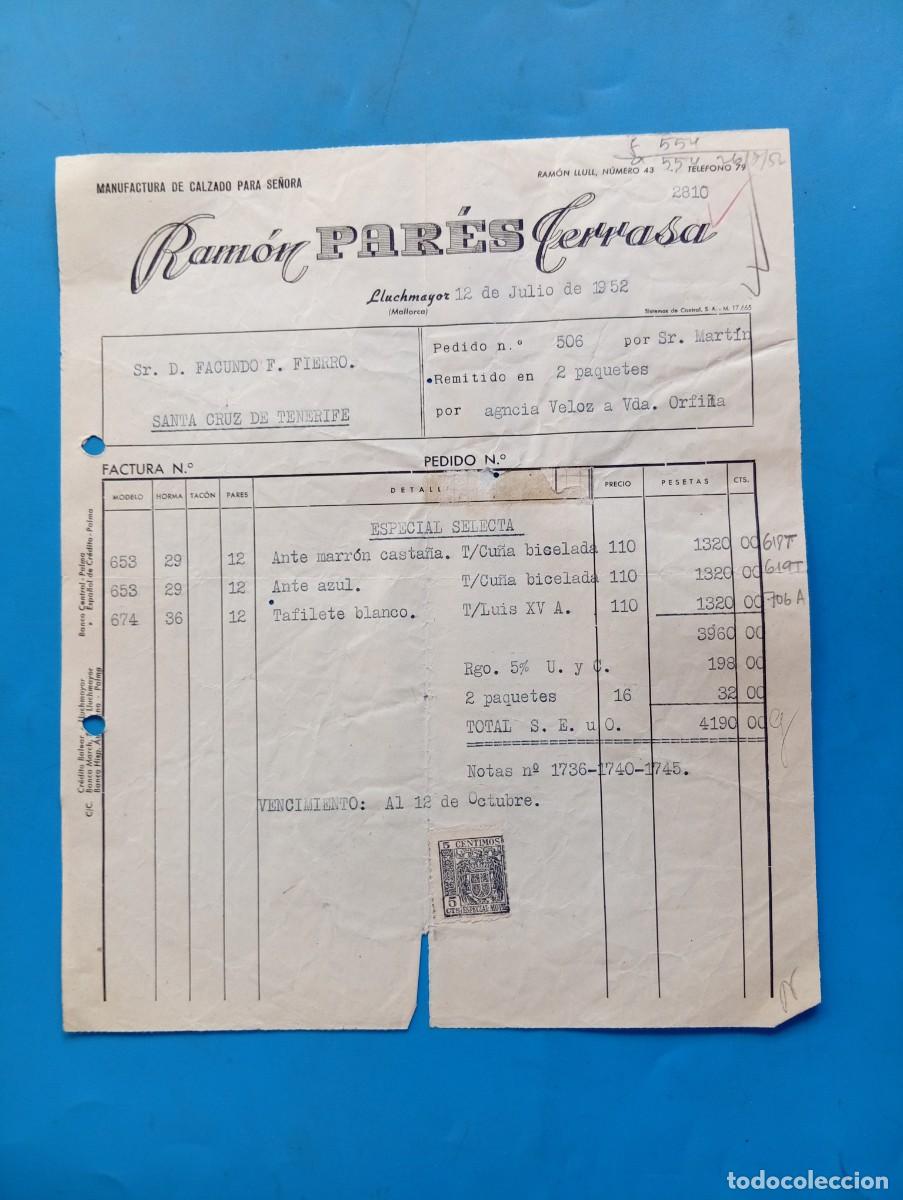 £ 554
554 26/7/52
MANUFACTURA DE CALZADO PARA SEÑORA
RAMÓN LLULL, NÚMERO 43 TELEFONO 79
2810
Ramón PARÉS Terrasa
Lluchmayor 12 de Julio de 1952
(Mallorca)
Sistemas de Control, S. A. - M. 17665
Sr. D. FACUNDO F. FIERRO.
SANTA CRUZ DE TENERIFE
Pedido n.º 506 por Sr. Martín
Remitido en 2 paquetes
por agncia Veloz a Vda. Orfila
FACTURA N.º PEDIDO N.º
MODELO HORMA TACÓN PARES DETALL PRECIO PESETAS CTS.
ESPECIAL SELECTA
653 29 12 Ante marrón castaña. T/Cuña bicelada 110 1320 00 619T
653 29 12 Ante azul. T/Cuña bicelada 110 1320 00 619T
674 36 12 Tafilete blanco. T/Luis XV A. 110 1320 00 706A
3960 00
Rgo. 5% U. y C. 198 00
2 paquetes 16 32 00
TOTAL S. E. u O. 4190 00
Notas nº 1736-1740-1745.
VENCIMIENTO: Al 12 de Octubre.
5 CENTIMOS
5 CTS ESPECIAL MOVIL
Banco Central - Palma
" Español de Crédito - Palma
Crédito Balear - Lluchmayor
Banco March, Lluchmayor
C/C. Banco Hisp. - Palma
todocoleccion